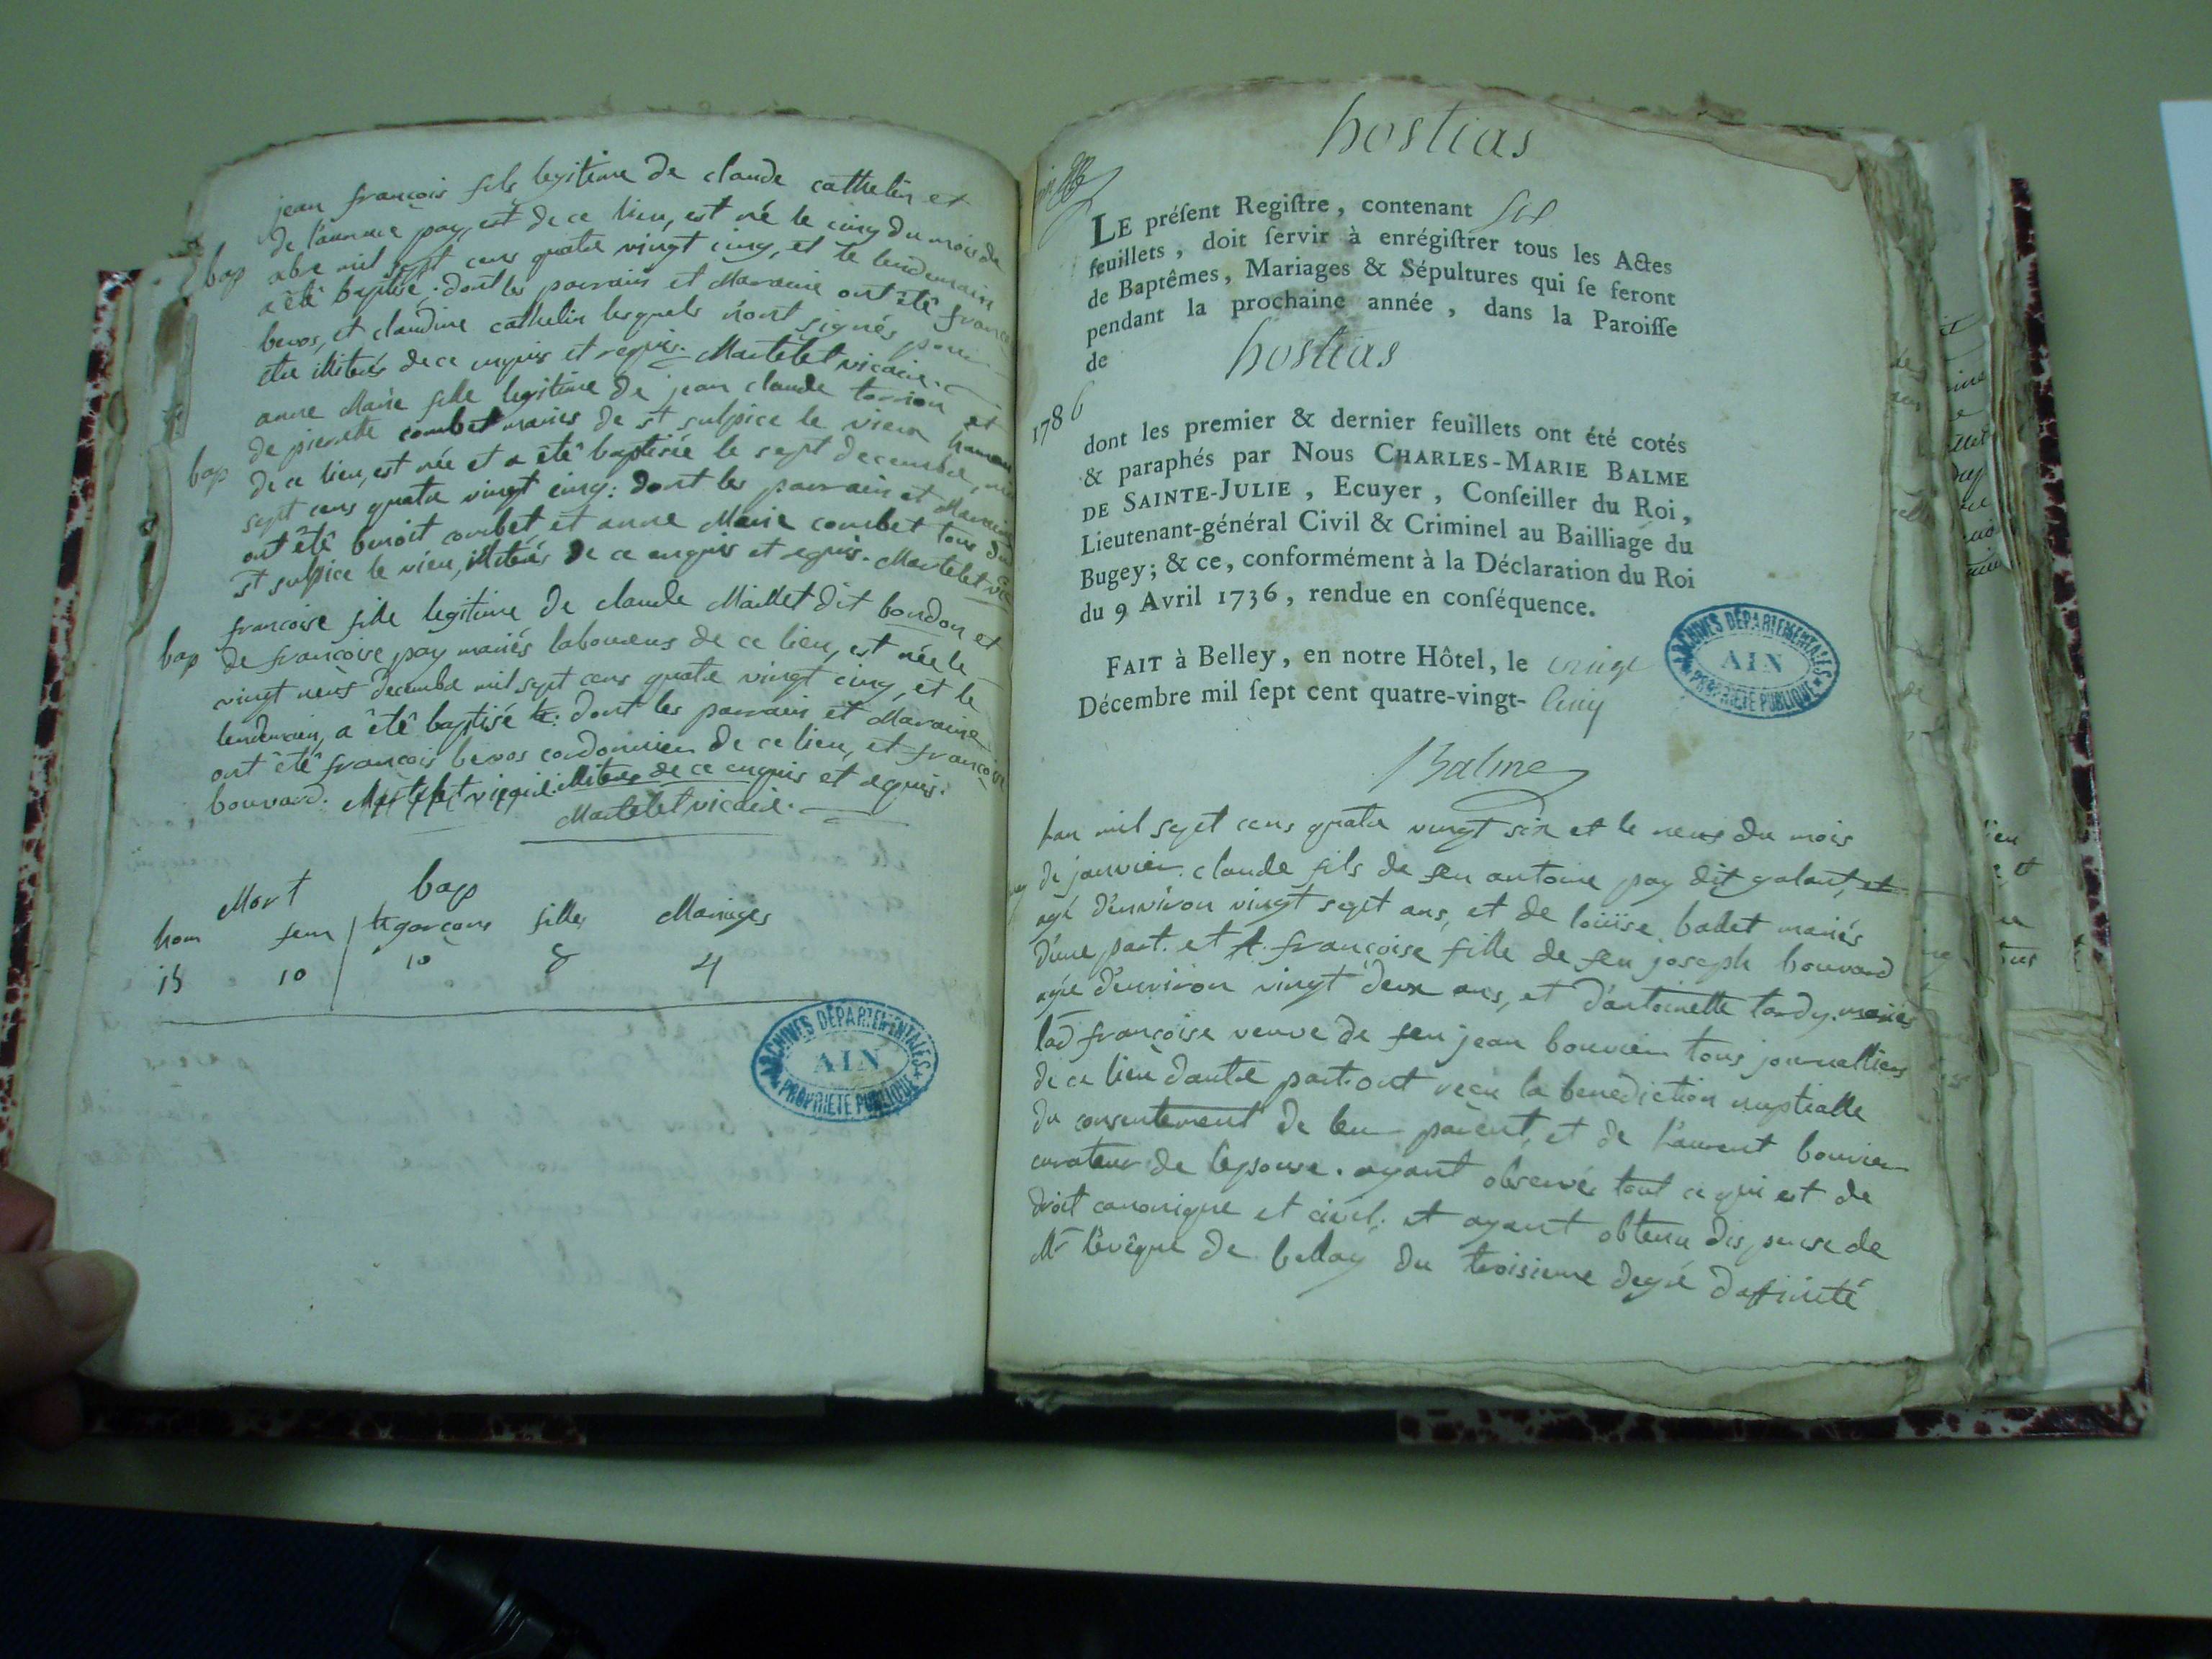 jean françois fils legitime de claude cathelin et
de laurence pay, est de ce lieu, est né le cinq du mois de
bap
xbre mil sept cens quatre vingt cinq, et le lendemain
a été baptisé: dont les parrain et Maraine ont été
bevos, et claudine cathelin lesquels n'ont signés pour
etre illiterés de ce enquis et requis. Martelet vicaire.
anne Marie fille legitime de jean claude torrion et
de pierrette combet mariés de st sulpice le vieux
bap
de ce lieu, est née et a été baptisée le sept decembre,
sept cens quatre vingt cinq: dont les parrain et Maraine
ont été benoit combet et anne Marie combet tous du
st sulpice le vieu, illiterés de ce enquis et requis. Martelet vic
francoise fille legitime de claude Maillet dit bondon et
bap
de francoise pay mariés laboureurs de ce lieu, est née le
vingt neuf decembre mil sept cens quatre vingt cinq, et le
lendemain, a été baptisé: dont les parrain et Maraine
ont été françois bevos cordonnier de ce lieu, et françoise
bouvard. Martelet vicaire. illiteres de ce enquis et requis.
Martelet vicaire.
Mort bap
hom fem garcons filles Mariages
10 10 8 4
ARCHIVES DÉPARTEMENTALES
AIN
PROPRIÉTÉ PUBLIQUE
hostias
LE préſent Regiſtre, contenant six
feuillets, doit ſervir à enrégiſtrer tous les Actes
de Baptêmes, Mariages & Sépultures qui ſe feront
pendant la prochaine année, dans la Paroiſſe
de hostias
1786
dont les premier & dernier feuillets ont été cotés
& paraphés par Nous CHARLES-MARIE BALME
DE SAINTE-JULIE, Ecuyer, Conſeiller du Roi,
Lieutenant-général Civil & Criminel au Bailliage du
Bugey; & ce, conformément à la Déclaration du Roi
du 9 Avril 1736, rendue en conſéquence.
FAIT à Belley, en notre Hôtel, le
Décembre mil ſept cent quatre-vingt- cinq
ARCHIVES DÉPARTEMENTALES
AIN
PROPRIÉTÉ PUBLIQUE
Balme
lan mil sept cens quatre vingt six et le neuf du mois
de janvier. claude fils de feu antoine pay dit galant, et
agé d'environ vingt sept ans, et de loüise badet mariés
d'une part. et françoise fille de feu joseph bouvard
agée d'environ vingt deux ans, et d'antoinette tardy. mariés
lad françoise veuve de feu jean bouvier tous journalliers
de ce lieu d'autre part. ont reçu la benediction nuptialle
du consentement de leur parent, et de Laurent bouvier
curateur de lepouse. ayant observés tout ce qui est de
droit canonique et civil. et ayant obtenu dispense de
Mr lévêque de bellay du troisieme degré daffinité